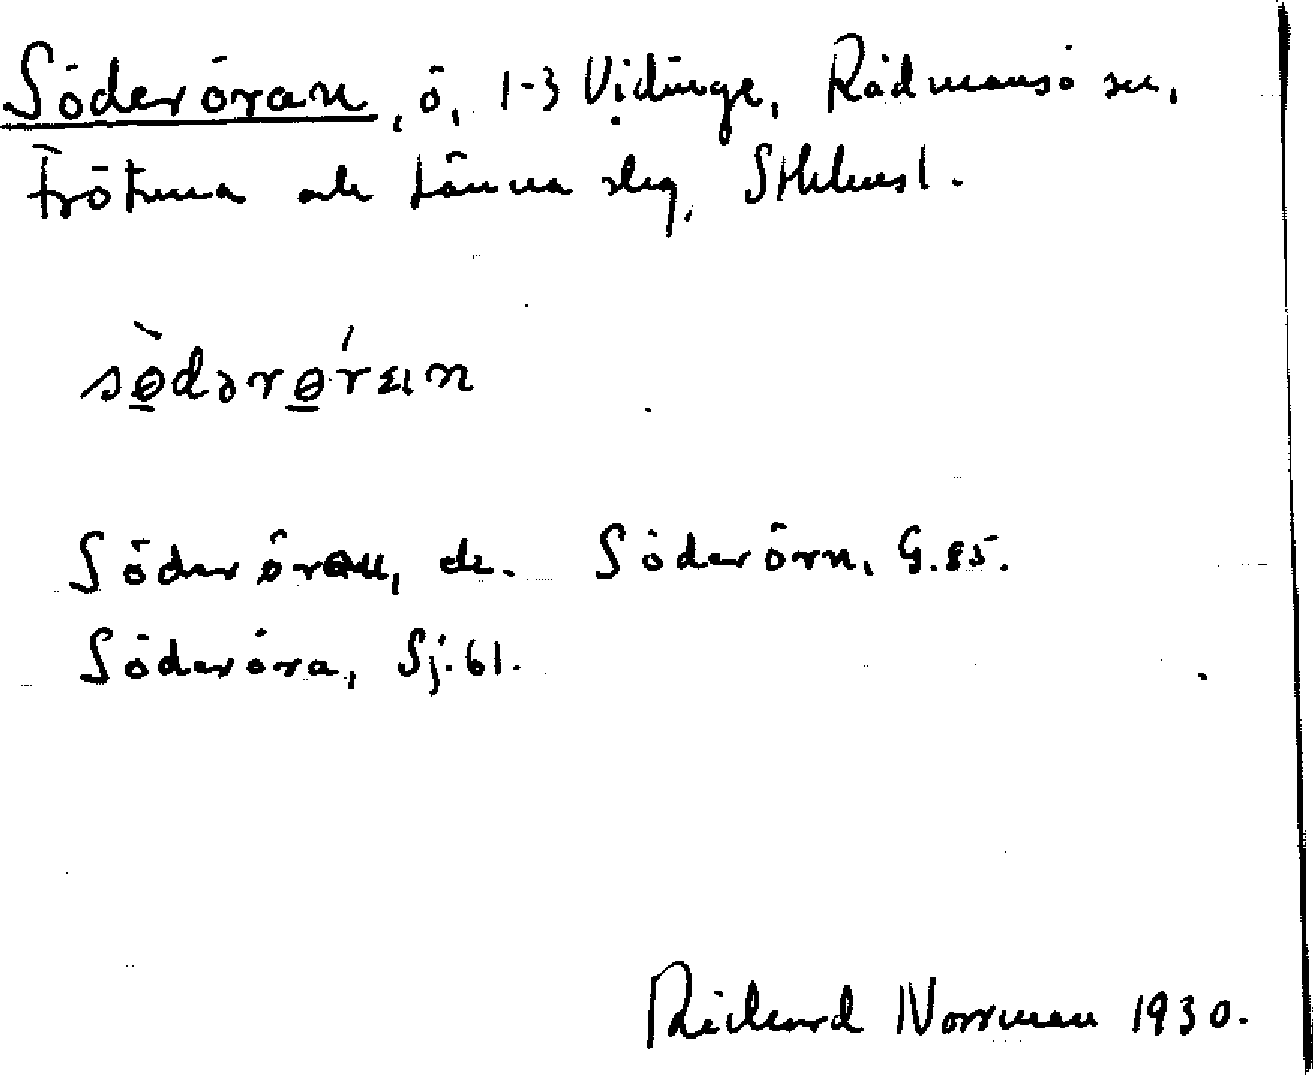 Söderöran, ö, 1-3 Vidinge, Rådmansö sn,
Frötuna och Länna slg, Sthlmsl.
sö̀dərǿran
Söderöran, ek. Söderörn, G.85.
Söderöra, Sj.61.
Rickard Norrman 1930.